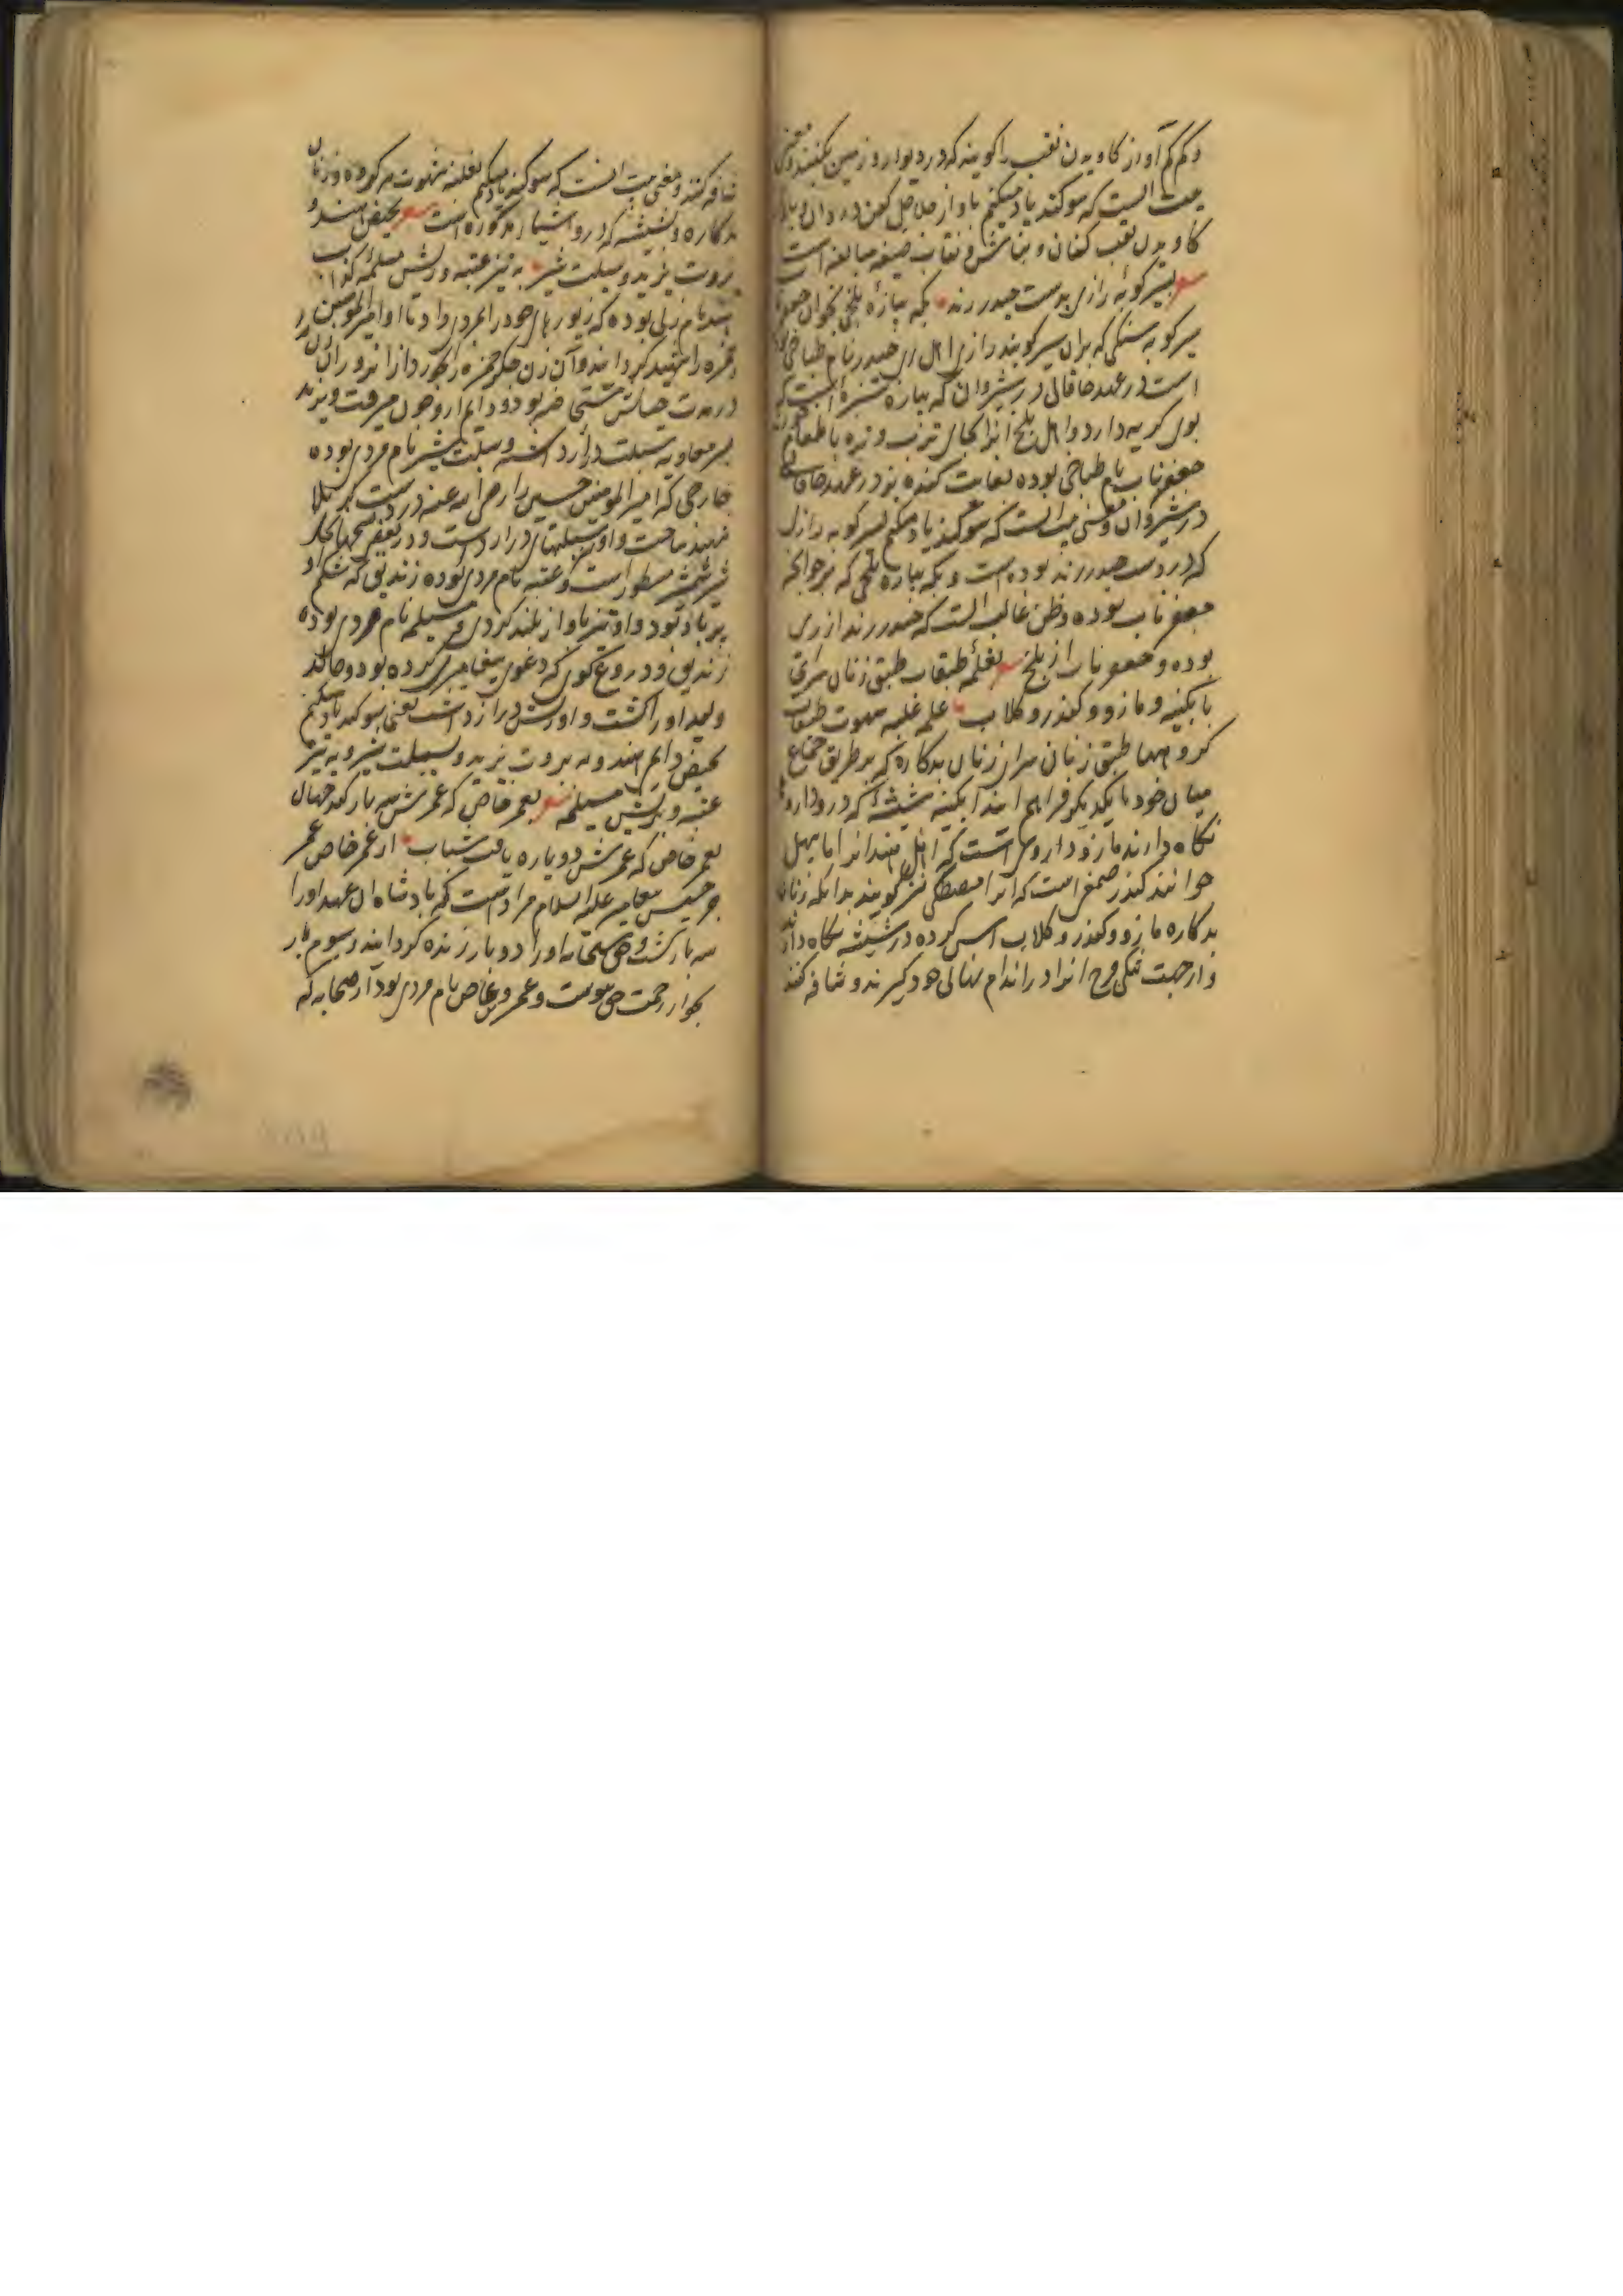 و کم کم آواز کاویدن نقب را گویند که در دیوار و زمین بکنند و معنی
بیت آنست که سوکند یاد میکنم باواز خلاخل کهن دزدان و باواز
کاویدن نقب کنان و بنا شش و نقاب صیغه مبالغه است
شعر بسیر کوبهٔ رازی بدست حیدر رند بکه بیازهٔ بلخی بخوان جعفر
سیر کوبه سنگی که بران سیر کوبند رازی اهل ری حیدر نام طباخی بوده
است در عهد خاقانی در شیروان که بیازه سبزه است که
بوی کریه دارد و اهل بلخ آنرا بجای ترب و تره با طعام خورند
جعفر ناب نام طباخی بوده بغایت کنده پز در عهد خاقانی
در شیروان و معنی بیت آنست که سوکند یاد میکنم بسیر کوبه رازی
که در دست حیدر رند بوده است و بکه بیازه بلخی که بر خوانچه
جعفر ناب بوده و ظن غالب آنست که حیدر رند از ری
بوده و جعفر ناب از بلخ شعر بغلمهٔ طبقات طبق زنان سرای
بابکینه و مازو و کندر و کلاب غلمه غلبه شهوت طبقات
کروهها طبق زنان مراد زنان بدکاره که بر طریق جماع
میان خود با یکدیکر فراهم آیند آبکینه شیشه که در و دارو
نکاه دارند مازو داروی است که اهل هند آنرا مایپهل
خوانند کندر صمغی است که آنرا مصطکی نیز کویند بدانکه زنان
بدکاره مازو و کندر و کلاب آس کرده در شیشه نکاه دارند
و از جهت تنکی فرج آنرا در اندام نهانی خود کیرند و شافه کنند
شافه کنند و معنی بیت آنست که سوکند یاد میکنم بغلبه شهوت هر کروه زنان
بدکاره و بشیشه که درو اشیا مذکوره است شعر بحیض هند و
بروت یزید و سبلت شمر به تیز عتبه و ریش مسیلمهٔ کذاب
هند نام زنی بوده که زیورهای خود را بمردی داد تا او امیرالمؤمنین
حمزه را شهید کردانید و آن زن جکر حمزه را بخورد از انرو ران زن
در مدت حیاتش خشتی حیض بود و دایم ازو خون میرفت و یزید
پسر معاویه سبلت دراز داشت و سبلت شمر نام مردی بوده
خارجی که امیرالمؤمنین حسین را رضی الله عنه در دشت کربلا
شهید ساخت و او سبلتهای دراز داشت و در بعضی نسخها بجای
شمر شمر مسطور است و عتبه نام مردی بوده زندیق که شکم او
پر باد بود و او تیز باواز بلند کردی و مسیلمه نام مردی بوده
زندیق و دروغ کوی که دعوی پیغامبری کرده بود و خالد
ولید او را کشت و او ریش دراز داشت یعنی سوکند یاد میکنم
بحیض دایم هند و به بروت یزید و سبلت شمر و به تیز
عتبه و بریش مسیلمه شعر بعمر خاص که عمرش سه بار کند جهان
بعمر خاص که عمرش دوباره یافت شباب از عمر خاص عمر
جرجیس پیغامبر علیه السلام مراد است که پادشاه آن عهد او را
سه بار کشت و حق سبحانه او را دو بار زنده کردانید و سوم بار
بجوار رحمت حق پیوست و عمرو عاص نام مردی بود از صحابه که